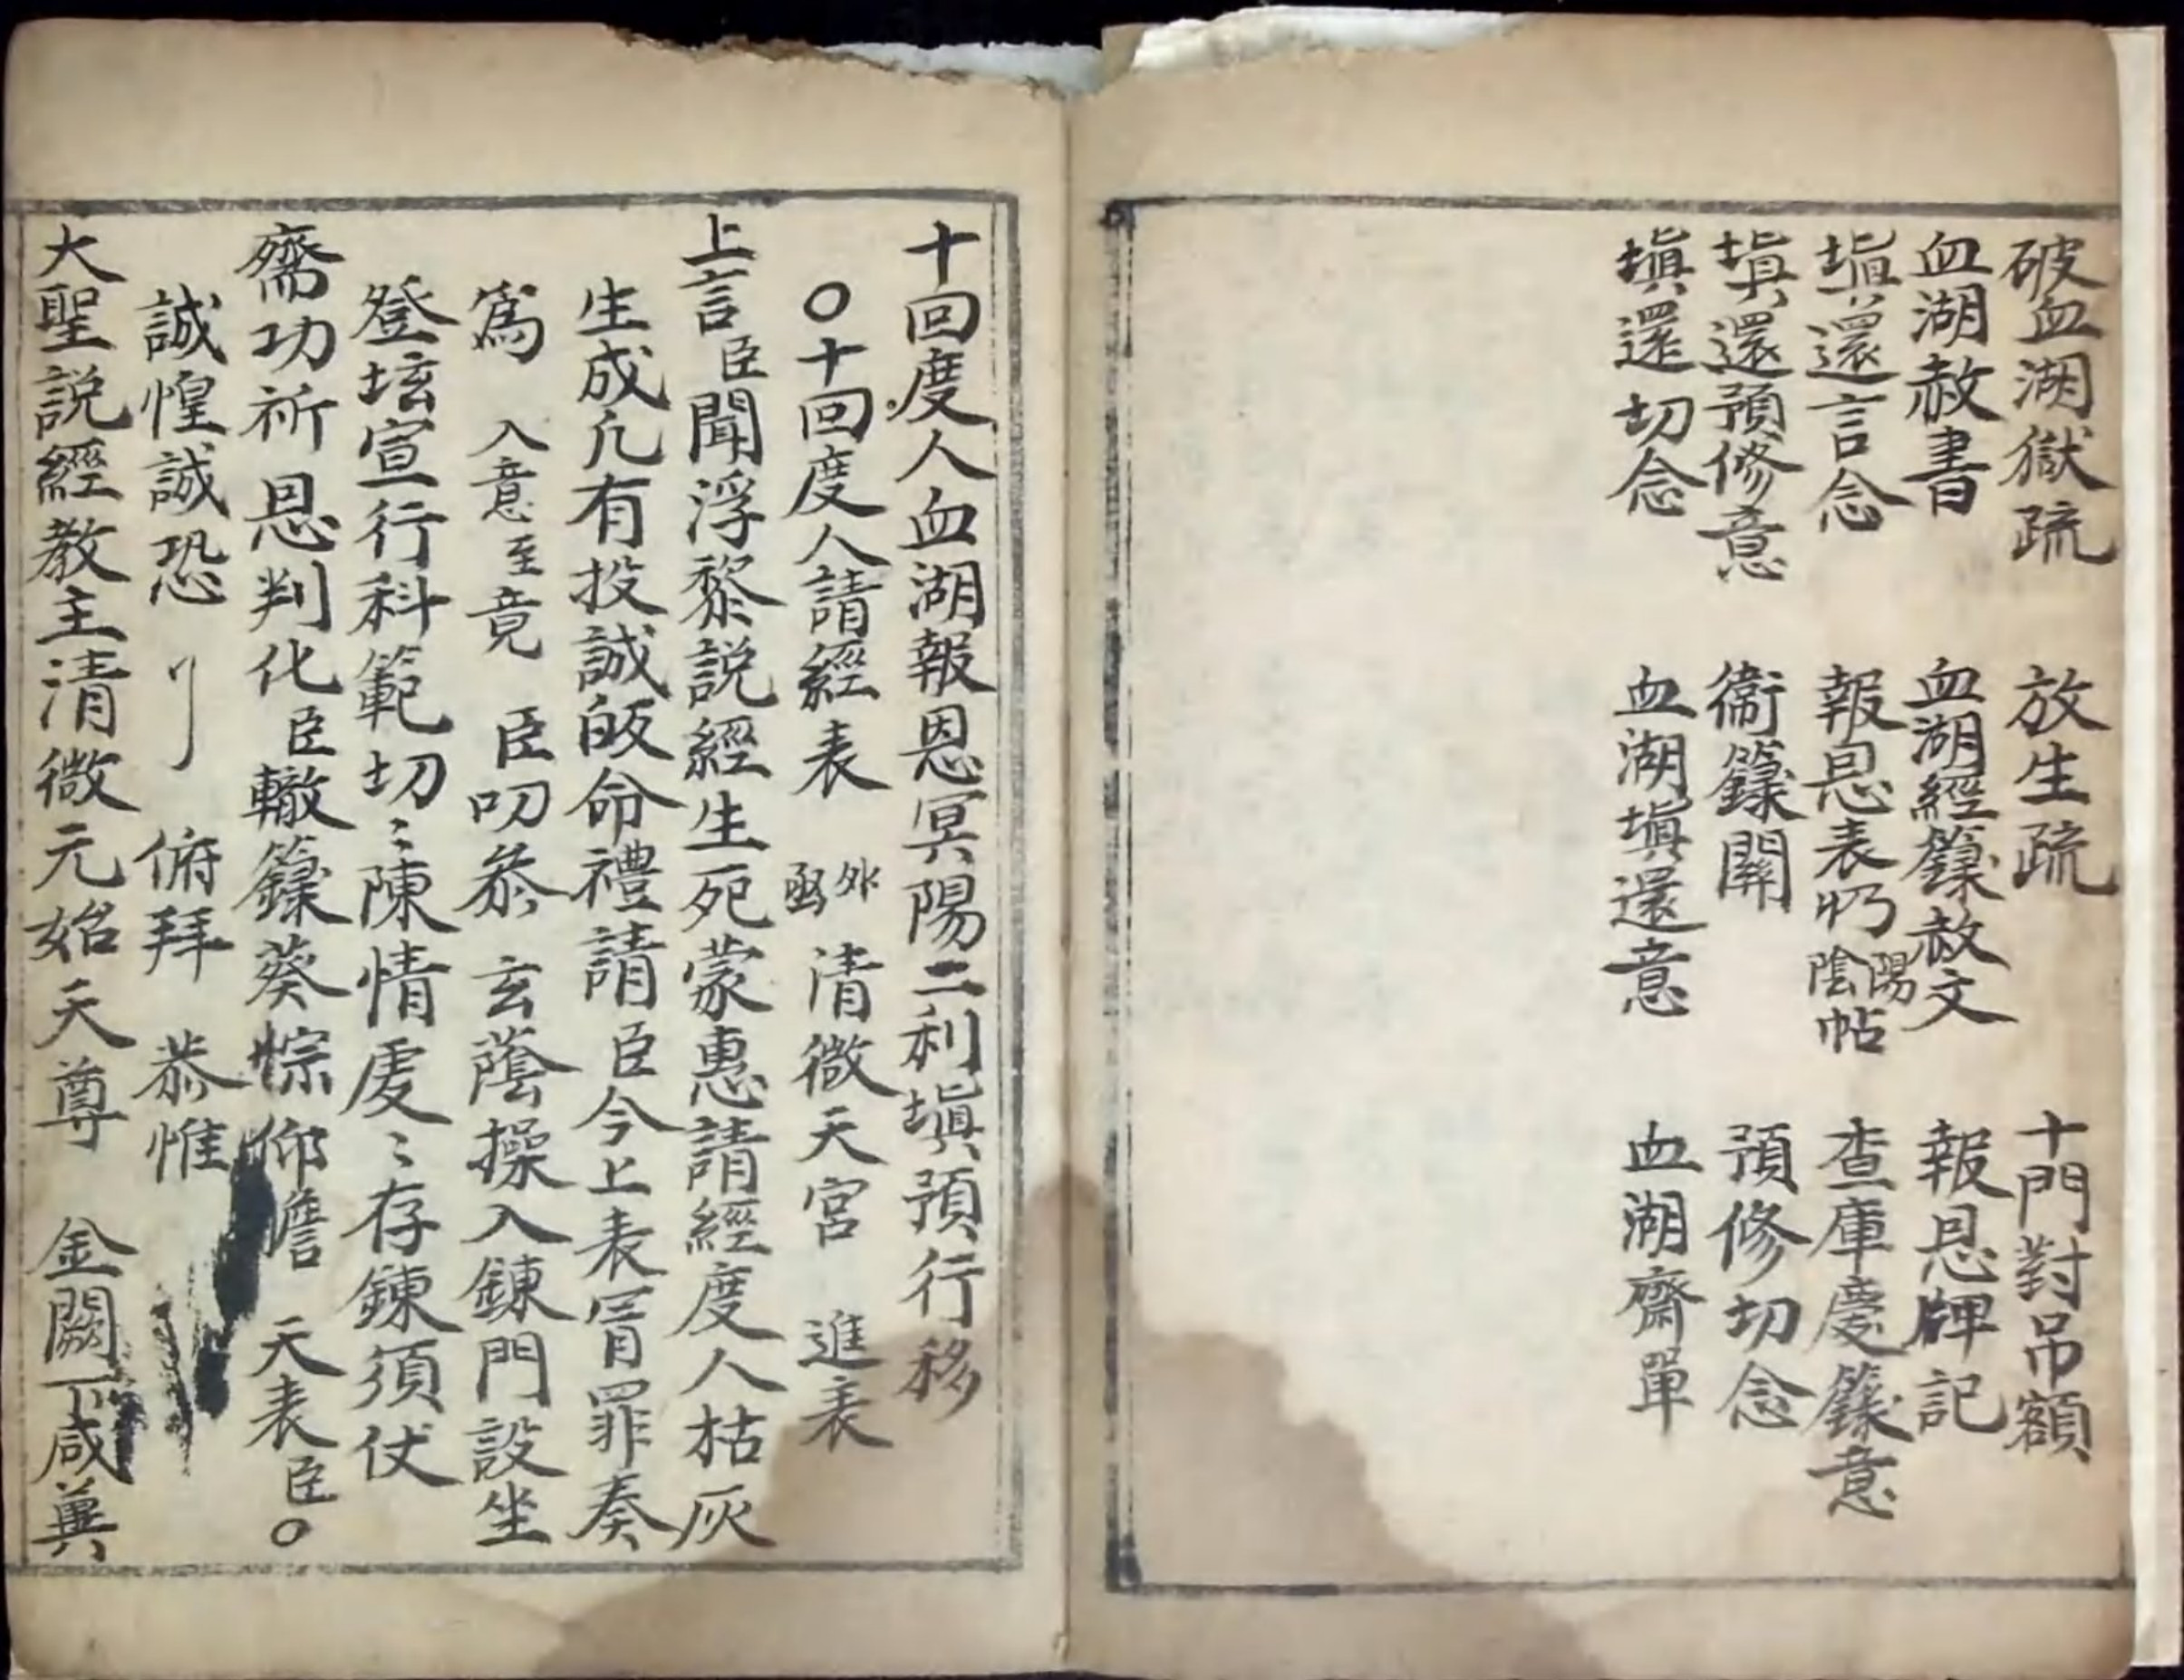 破血湖獄疏　放生疏　十門對吊額
血湖赦書　血湖經籙赦文　報恩牌記
塡還言念　報恩表 陽陰帖　查庫慶籙意
塡還預修意　衞籙關　預修切念
塡還切念　血湖塡還意　血湖齋單
十回度人血湖報恩冥陽二利塡預行移
〇十回度人請經表　外函　清微天宮　進表
上言臣聞浮黎説經生死蒙惠請經度人枯灰
生成凢有投誠皈命禮請臣今上表冐罪奏
爲　入意至竟　臣叨叅　玄蔭操入錬門設坐
登壇宣行科範切〻陳情虔〻存錬須仗
齋功祈恩判化臣轍籙葵悰仰瞻　天表臣〇
誠惶誠恐刂　俯拜　恭惟
大聖説經教主清微元始天尊　金闕下咸兾